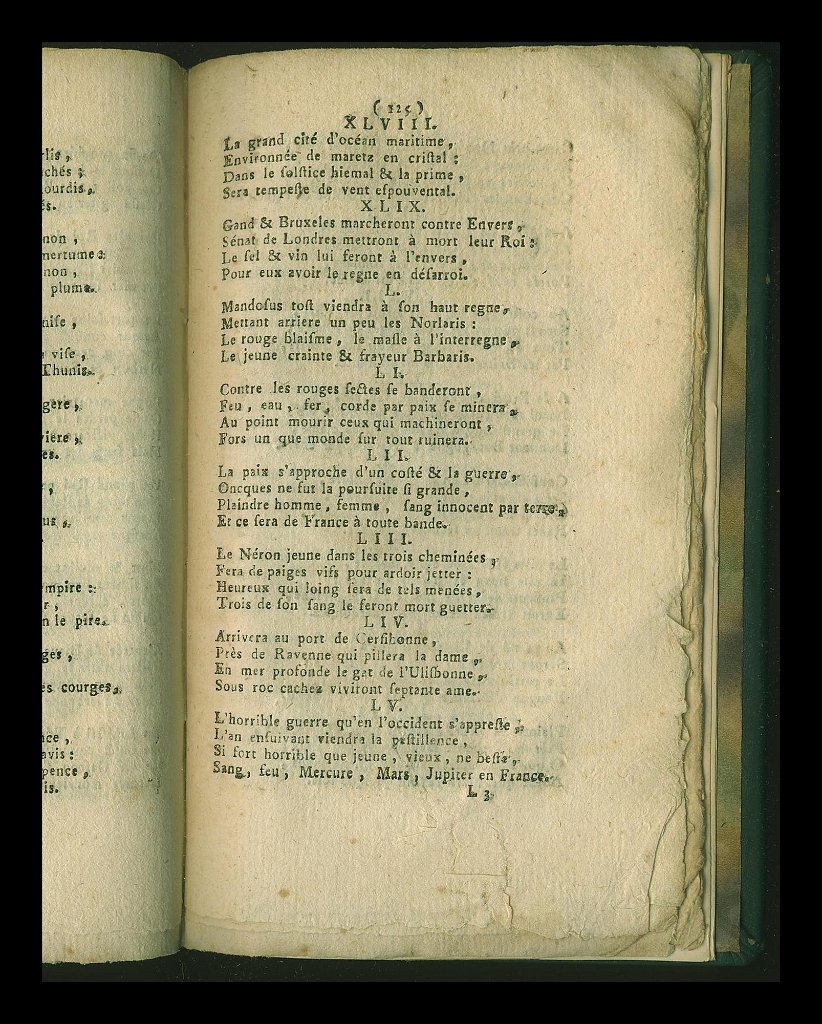 rlis,
chés ;
ourdis,
és.
non,
mertume :
non,
plume.
nise,
vise,
Thunis.
gere,
viere,
es.
us,
empire :
r,
n le pire.
ges,
es courges,
nce,
avis :
pence,
is.
( 125 )
XLVIII.
La grand cité d'océan maritime,
Environnée de maretz en criſtal :
Dans le ſolſtice hiemal & la prime,
Sera tempeſte de vent eſpouvental.
XLIX.
Gand & Bruxeles marcheront contre Envers,
Sénat de Londres mettront à mort leur Roi :
Le ſel & vin lui feront à l'envers,
Pour eux avoir le regne en déſarroi.
L.
Mandoſus toſt viendra à ſon haut regne,
Mettant arriere un peu les Norlaris :
Le rouge blaiſme, le maſle à l'interregne,
Le jeune crainte & frayeur Barbaris.
LI.
Contre les rouges ſectes ſe banderont,
Feu, eau, fer, corde par paix ſe minera,
Au point mourir ceux qui machineront,
Fors un que monde ſur tout ruinera.
LII.
La paix s'approche d'un coſté & la guerre,
Oncques ne fut la pourſuite ſi grande,
Plaindre homme, femme, ſang innocent par terre,
Et ce ſera de France à toute bande.
LIII.
Le Néron jeune dans les trois cheminées,
Fera de paiges vifs pour ardoir jetter :
Heureux qui loing ſera de tels menées,
Trois de ſon ſang le feront mort guetter.
LIV.
Arrivera au port de Corſibonne,
Près de Ravenne qui pillera la dame,
En mer profonde le gat de l'Ulisbonne,
Sous roc cachez viviront ſeptante ame.
LV.
L'horrible guerre qu'en l'occident s'appreſte,
L'an enſuivant viendra la peſtillence,
Si fort horrible que jeune, vieux, ne beſte,
Sang, feu, Mercure, Mars, Jupiter en France.
L 3